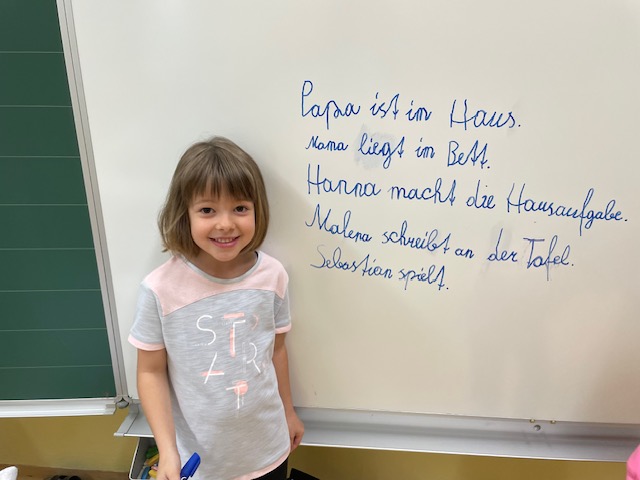 Papa ist im Haus.
Mama liegt im Bett.
Hanna macht die Hausaufgabe.
Malena schreibt an der Tafel.
Sebastian spielt.
ST
ART